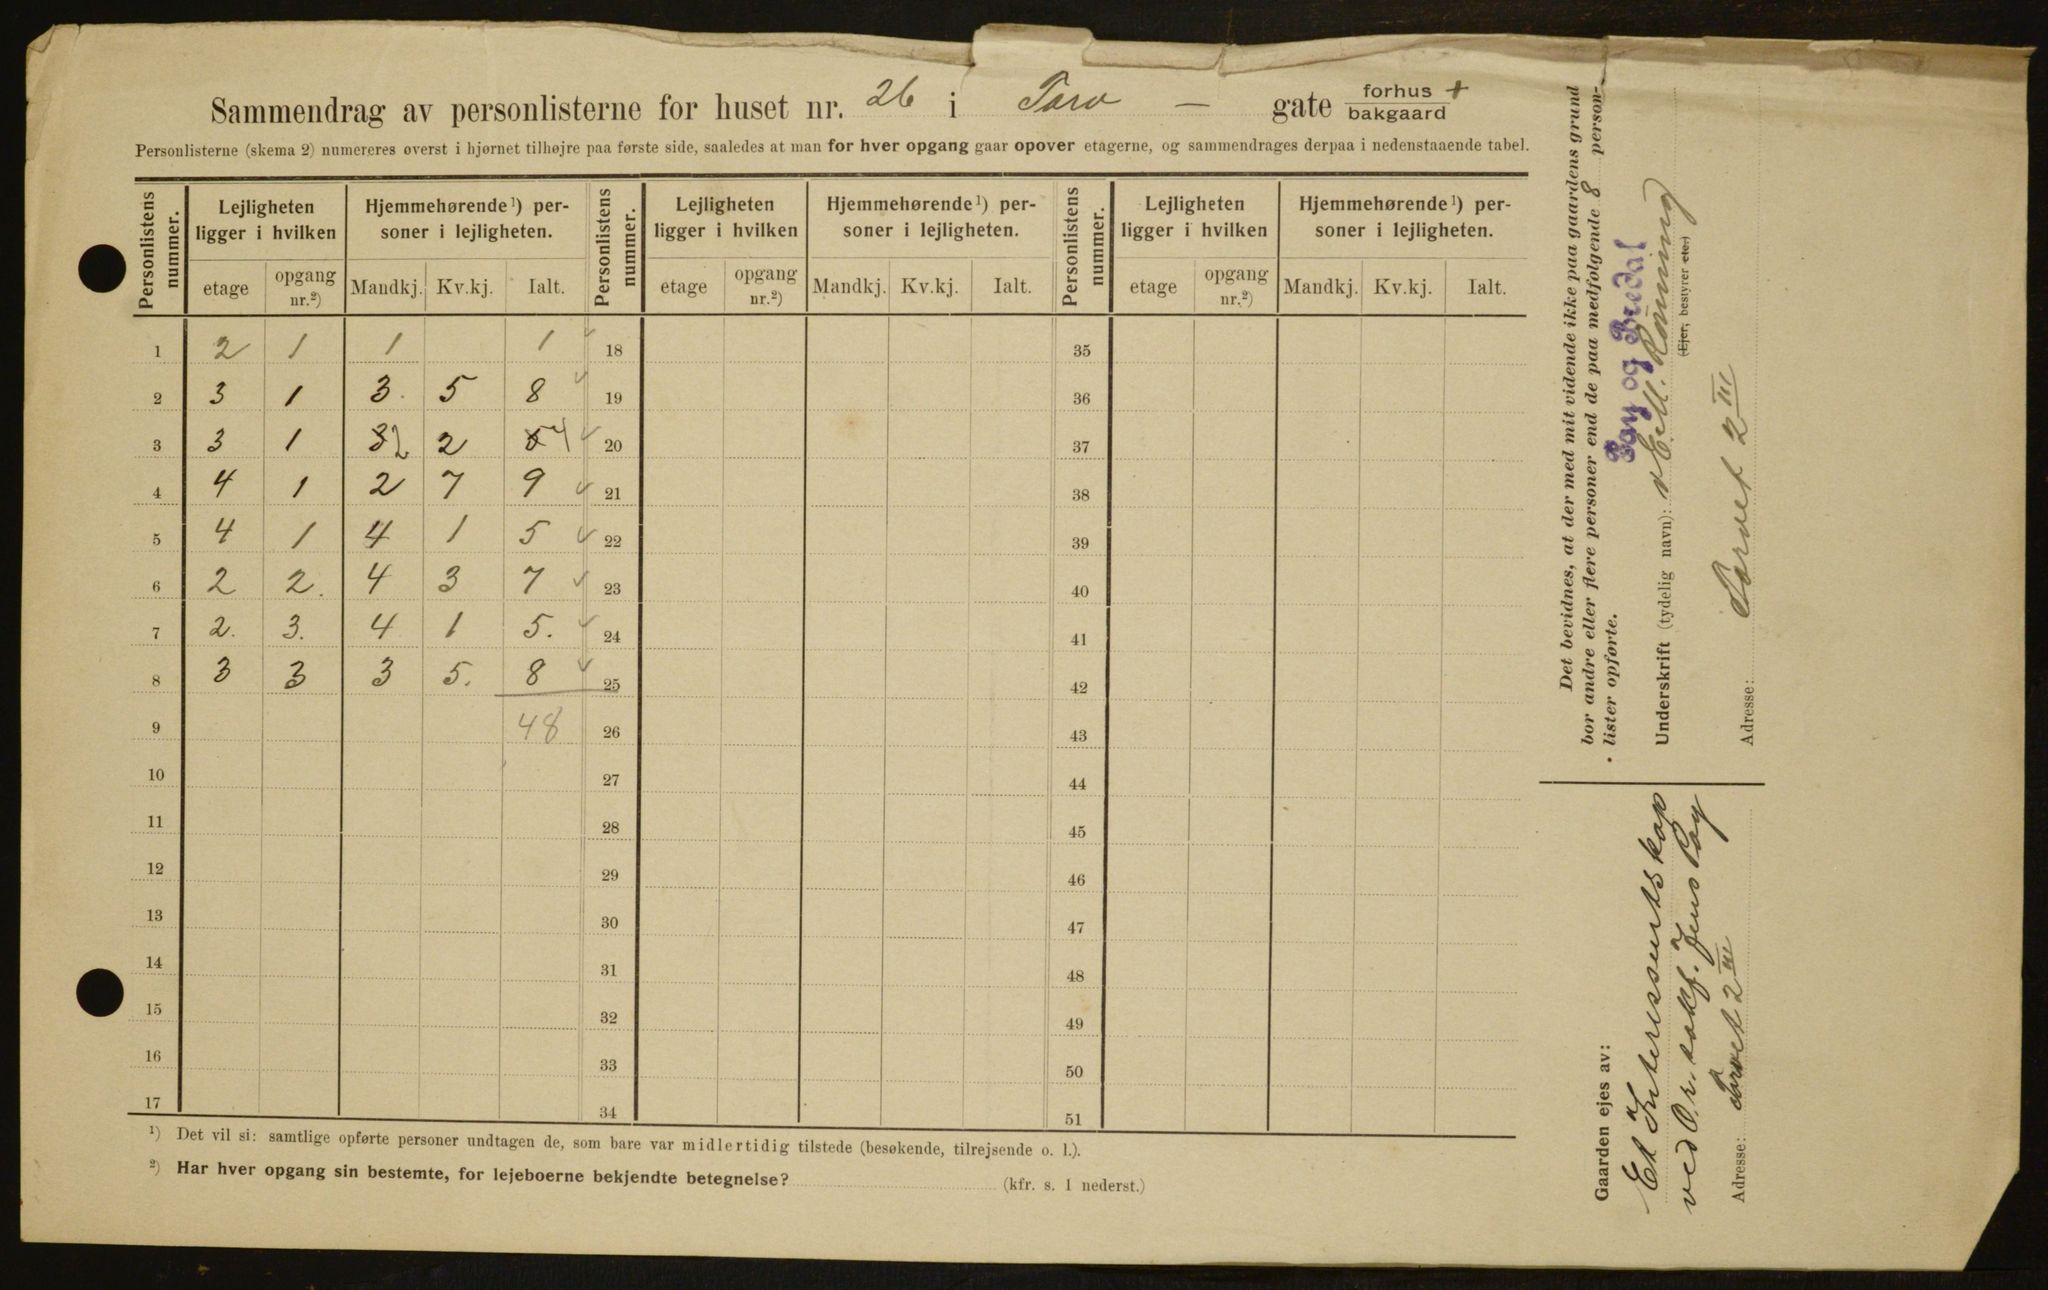 Sammendrag av personlisterne for huset nr. 26 i Torv — gate forhus + bakgaard
Personlisterne (skema 2) numereres øverst i hjørnet tilhøjre paa første side, saaledes at man for hver opgang gaar opover etagerne, og sammendrages derpaa i nedenstaaende tabel.
Personlistens nummer. Lejligheten ligger i hvilken Hjemmehørende¹) personer i lejligheten. Personlistens nummer. Lejligheten ligger i hvilken Hjemmehørende¹) personer i lejligheten. Personlistens nummer. Lejligheten ligger i hvilken Hjemmehørende¹) personer i lejligheten.
etage opgang nr.²) Mandkj. Kv.kj. Ialt. etage opgang nr.²) Mandkj. Kv.kj. Ialt. etage opgang nr.²) Mandkj. Kv.kj. Ialt.
1 2 1 1 1 ✓ 18 35
2 3 1 3. 5 8 ✓ 19 36
3 3 1 2 2 4 ✓ 20 37
4 4 1 2 7 9 ✓ 21 38
5 4 1 4 1 5 ✓ 22 39
6 2 2. 4 3 7 ✓ 23 40
7 2. 3. 4 1 5. ✓ 24 41
8 3 3 3 5. 8 ✓ 25 42
9 48 26 43
10 27 44
11 28 45
12 29 46
13 30 47
14 31 48
15 32 49
16 33 50
17 34 51
¹) Det vil si: samtlige opførte personer undtagen de, som bare var midlertidig tilstede (besøkende, tilrejsende o. l.).
²) Har hver opgang sin bestemte, for lejeboerne bekjendte betegnelse? (kfr. s. 1 nederst.)
Det bevidnes, at der med mit vidende ikke paa gaardens grund
bor andre eller flere personer end de paa medfølgende 8 person-
lister opførte.
Pay og Bredal
Underskrift (tydelig navn): v E. M. Rømming
(Ejer, bestyrer etc.)
Adresse: Torvet 2 III
Gaarden ejes av:
Et Interessentskap
ved O.r.sakf. Jens Pay
Adresse: Torvet 2 III